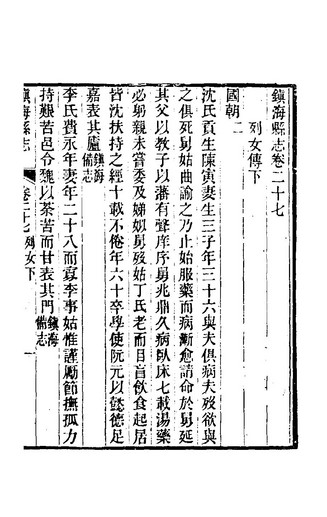 鎮海縣志卷二十七
列女傳下
國朝二
沈氏貢生陳寅妻生三子年三十六與夫俱病夫歿欲與
之俱死舅姑曲諭之乃止始服藥而病漸愈請命於舅延
其父以教子以濬有聲庠序舅兆鼎久病臥床七載湯藥
必躬親未嘗委及娣姒舅歿姑丁氏老而目盲飲食起居
皆沈扶持之經十載不倦年六十卒學使阮元以懿德足
嘉表其廬鎮海備志
李氏費永年妻年二十八而寡李事姑惟謹勵節撫孤力
持艱苦邑令魏以荼苦而甘表其門鎮海備志
鎮海縣志
卷二十七 列女下
一